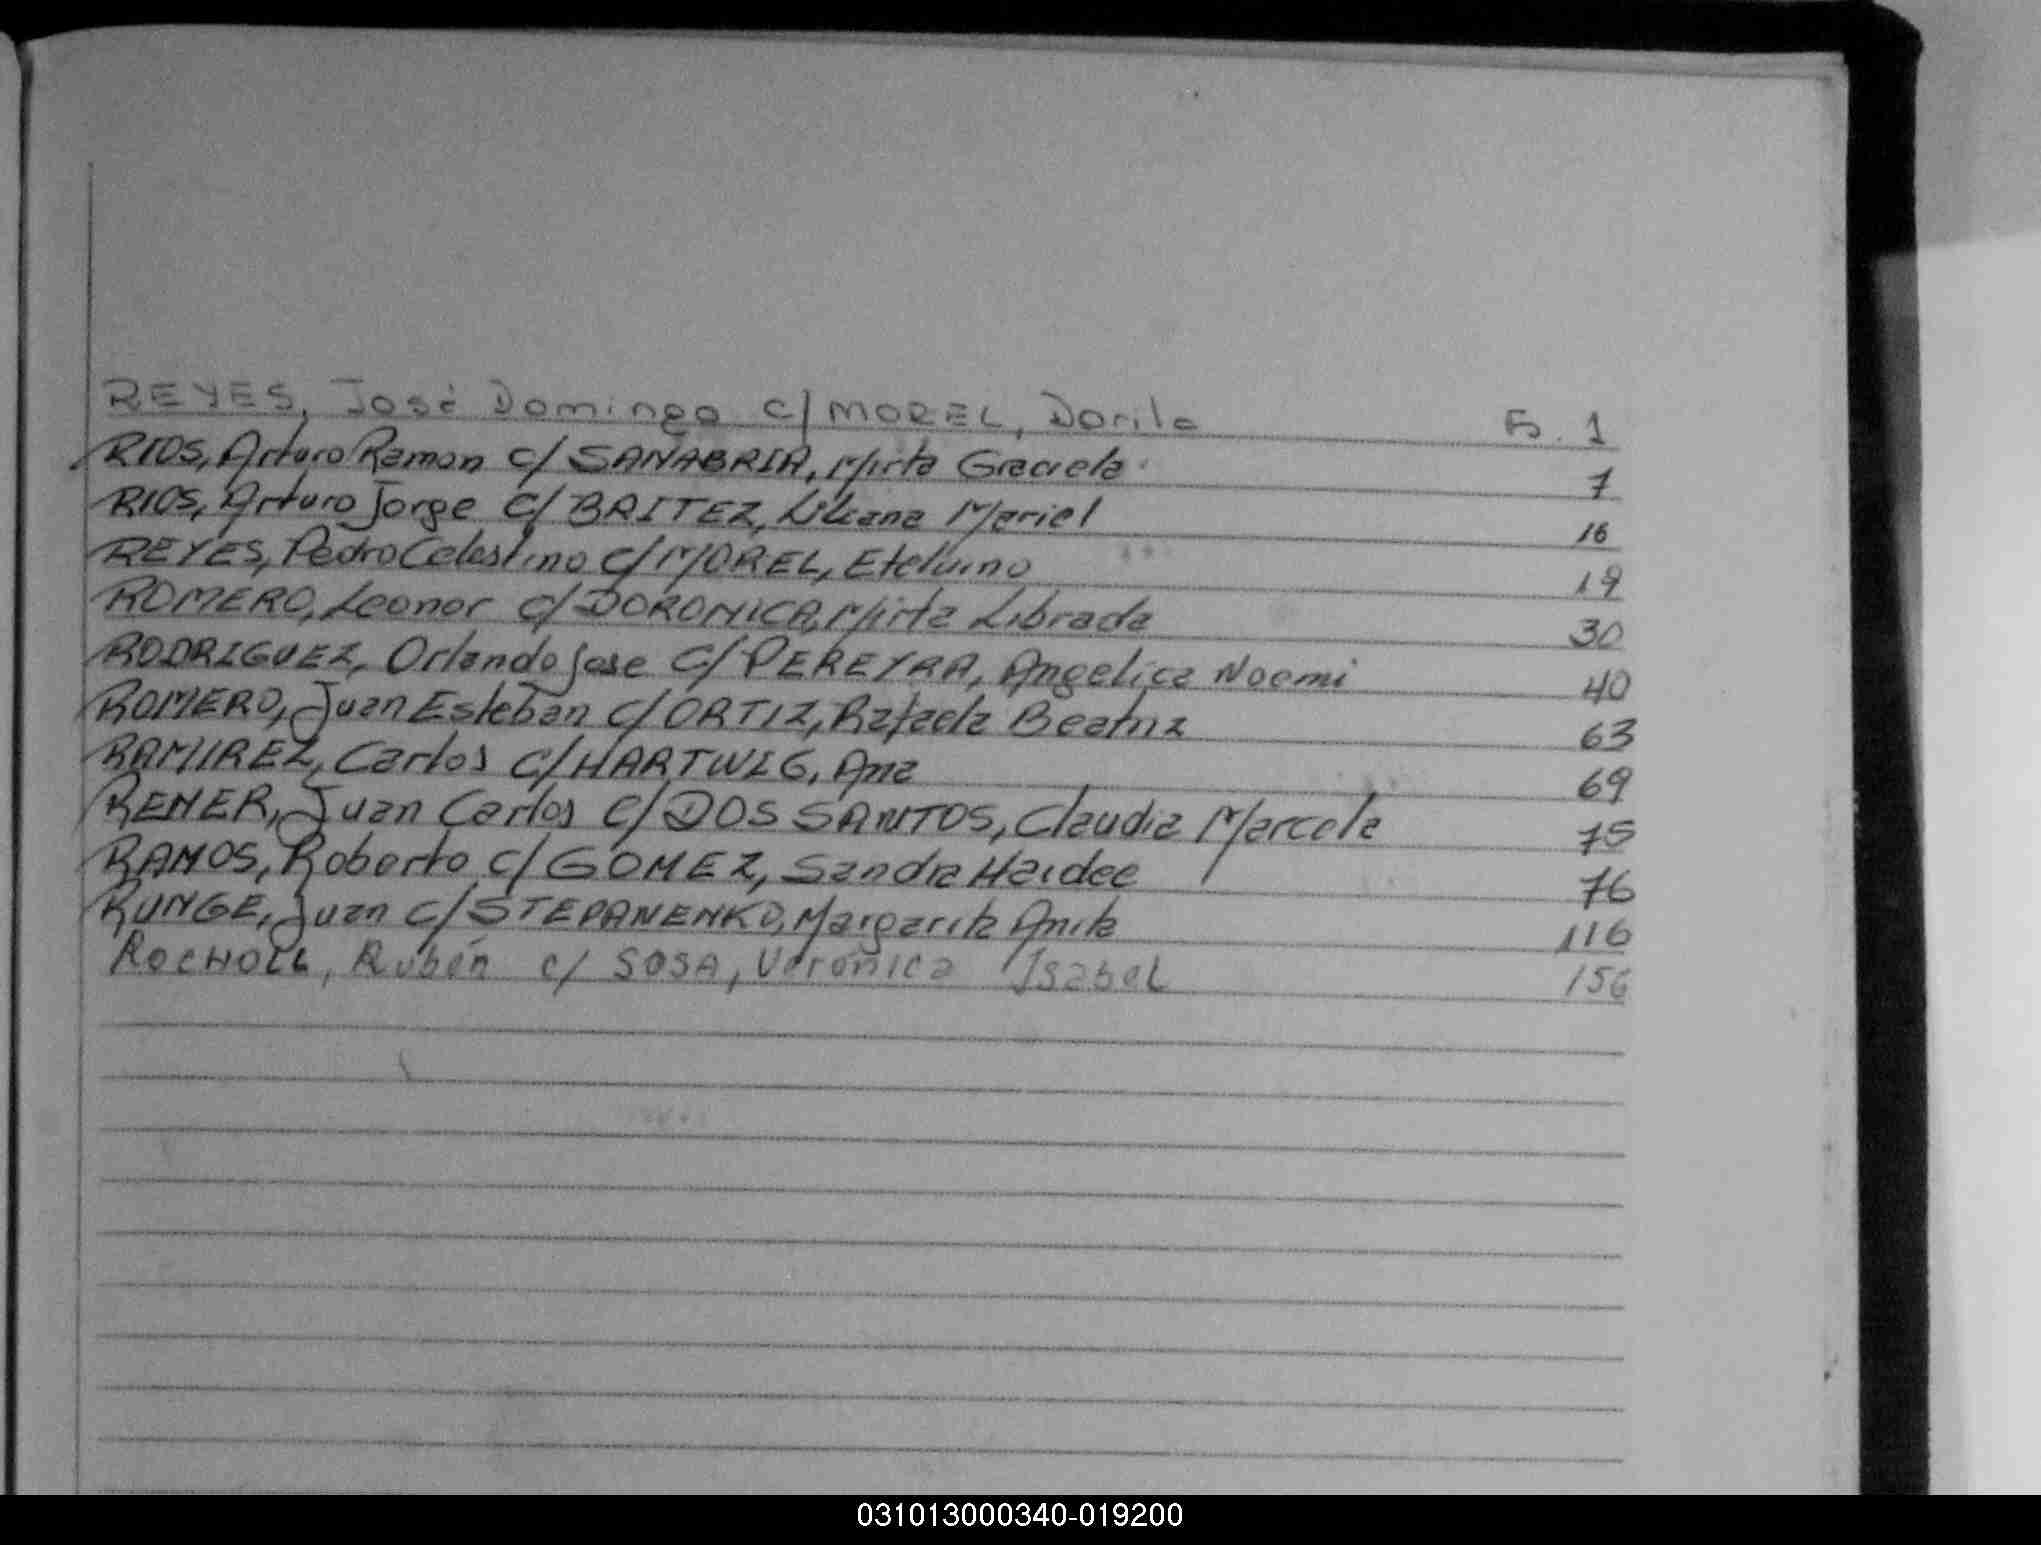 REYES, José Domingo c/ MOREL, Dorila Fo. 1
RIOS, Arturo Ramon c/ SANABRIA, Mirta Graciela 7
RIOS, Arturo Jorge c/ BAITEZ, Liliana Mariel 16
REYES, Pedro Celestino c/ MOREL, Etelvina 19
ROMERO, Leonor c/ DORONICA, Mirta Librada 30
RODRIGUEZ, Orlando Jose c/ PEREYRA, Angelica Noemi 40
ROMERO, Juan Esteban c/ ORTIZ, Rafaela Beatriz 63
RAMIREZ, Carlos c/ HARTWIG, Ana 69
RENER, Juan Carlos c/ DOS SANTOS, Claudia Marcela 75
RAMOS, Roberto c/ GOMEZ, Sandra Haidee 76
RUNGE, Juan c/ STEPANENKO, Margarita Anita 116
ROCHOLL, Rubén c/ SOSA, Verónica Isabel 156
031013000340-019200